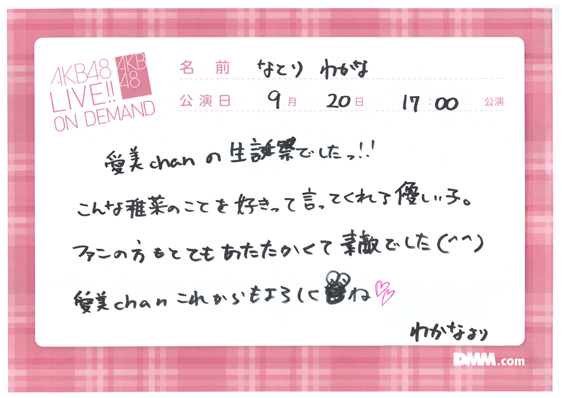 AKB48
LIVE!!
ON DEMAND
AKB
48
名前 なとり わかな
公演日 9月 20日 17:00 公演
愛美chanの生誕祭でしたっ!!
こんな稚菜のことを好きって言ってくれる優しい子。
ファンの方もとてもあたたかくて素敵でした(^^)
愛美chanこれからもよろしくね
わかなより
DMM.com